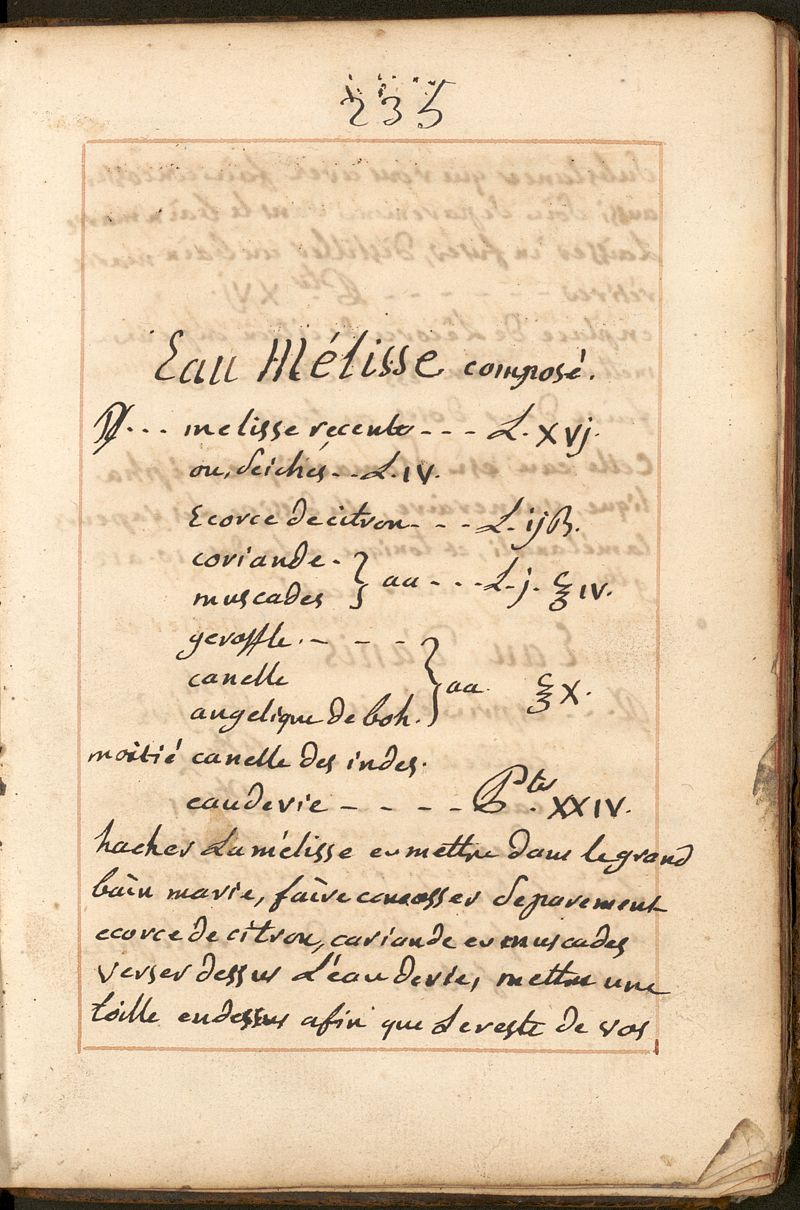 235
Eau Mélisse composé.
℞... melisse recente --- L. XVj.
ou, séichés.. L. IV.
Ecorce de citron. - - L. ijß.
coriande -
muscades } aa - - - L. j. ℥ IV.
geroffle. - - - -
canelle
angelique de boh. } aa ℥ X.
moitié canelle des indes.
eau de vie - - - - Ptes. XXIV.
hacher La mélisse et mettre dans le grand
bain marie, faire concasser separement
ecorce de citron, cariande et muscades
verser dessus L'eau de vie, mettre une
toille en dessus afin que Le reste de vos